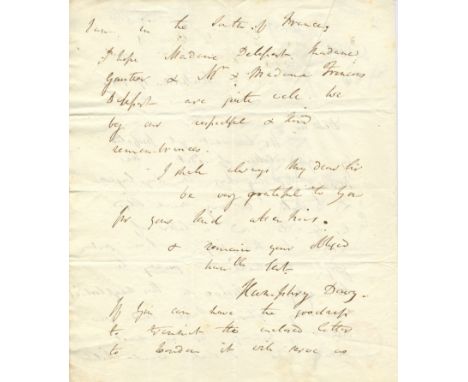 I am in the South of France,
I hope Madame Delessert, Madame
Gautier & Mr & Madame Francois
Delessert are quite well. We
beg our respectful & kind
remembrances.
I shall always My dear Sir
be very grateful to you
for your kind attentions.
& remain your obliged
humble Sert.
Humphry Davy.
If you can have the goodness
to transmit the inclosed letter
to London it will serve us